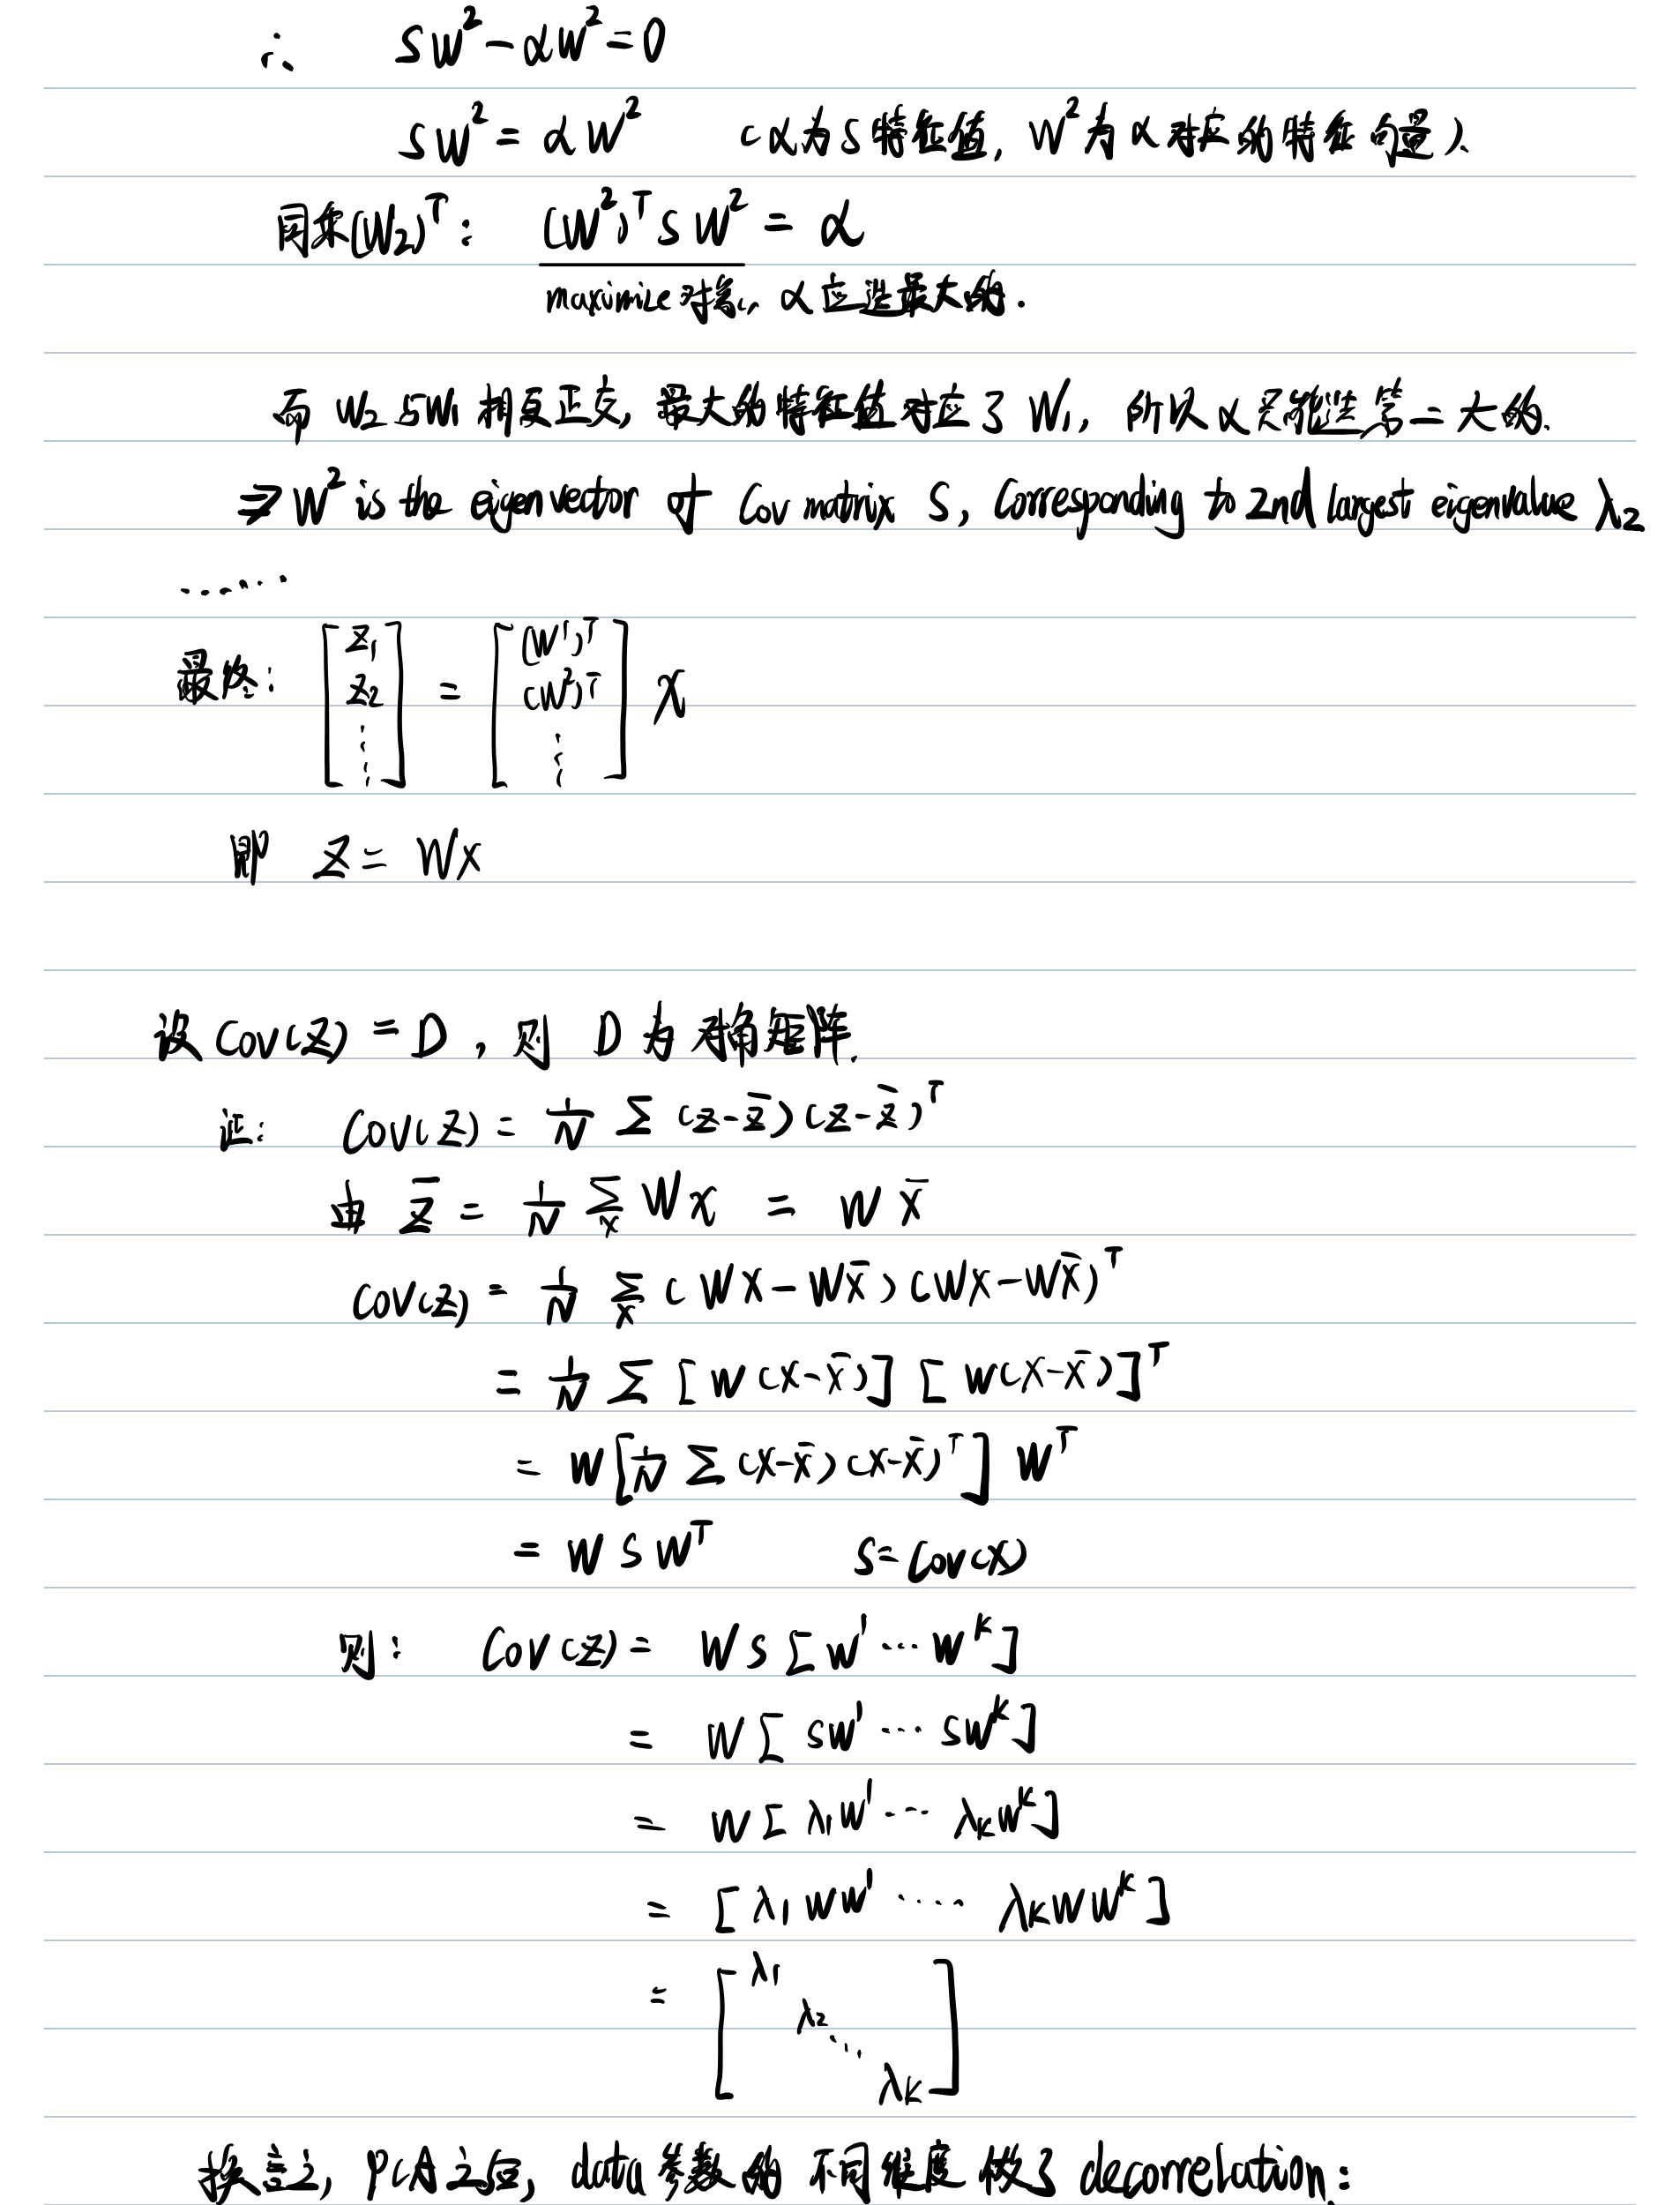 ∴ SW² - αW² = 0
SW² = αW² (α为S特征值, W²为α对应的特征向量).
同乘(W₂)ᵀ: (W²)ᵀSW² = α
maximize 对象, α应选最大的.
而 W₂与W₁相互正交, 最大的特征值对应了W₁, 所以α只能选第二大的.
⇒ W² is the eigenvector of Cov matrix S, Corresponding to 2nd largest eigenvalue λ₂
......
最终: [z₁ z₂ ⋮] = [(W¹)ᵀ (W²)ᵀ ⋮] x
即 z = Wx
设 Cov(z) = D, 则 D 为对角矩阵.
证: Cov(z) = 1/N Σ (z-z̄)(z-z̄)ᵀ
由 z̄ = 1/N Σₓ Wx = W x̄
Cov(z) = 1/N Σₓ (Wx - Wx̄)(Wx - Wx̄)ᵀ
= 1/N Σ [W(x-x̄)] [W(x-x̄)]ᵀ
= W[1/N Σ (x-x̄)(x-x̄)ᵀ] Wᵀ
= W S Wᵀ S = Cov(x)
则: Cov(z) = W S [w¹ ... wᴷ]
= W [Sw¹ ... Swᴷ]
= W [λ₁w¹ ... λₖwᴷ]
= [λ₁Ww¹ .... λₖWwᴷ]
= [λ₁ λ₂ ⋱ λₖ]
换言之, PCA之后, data参数的不同维度做了decorrelation: